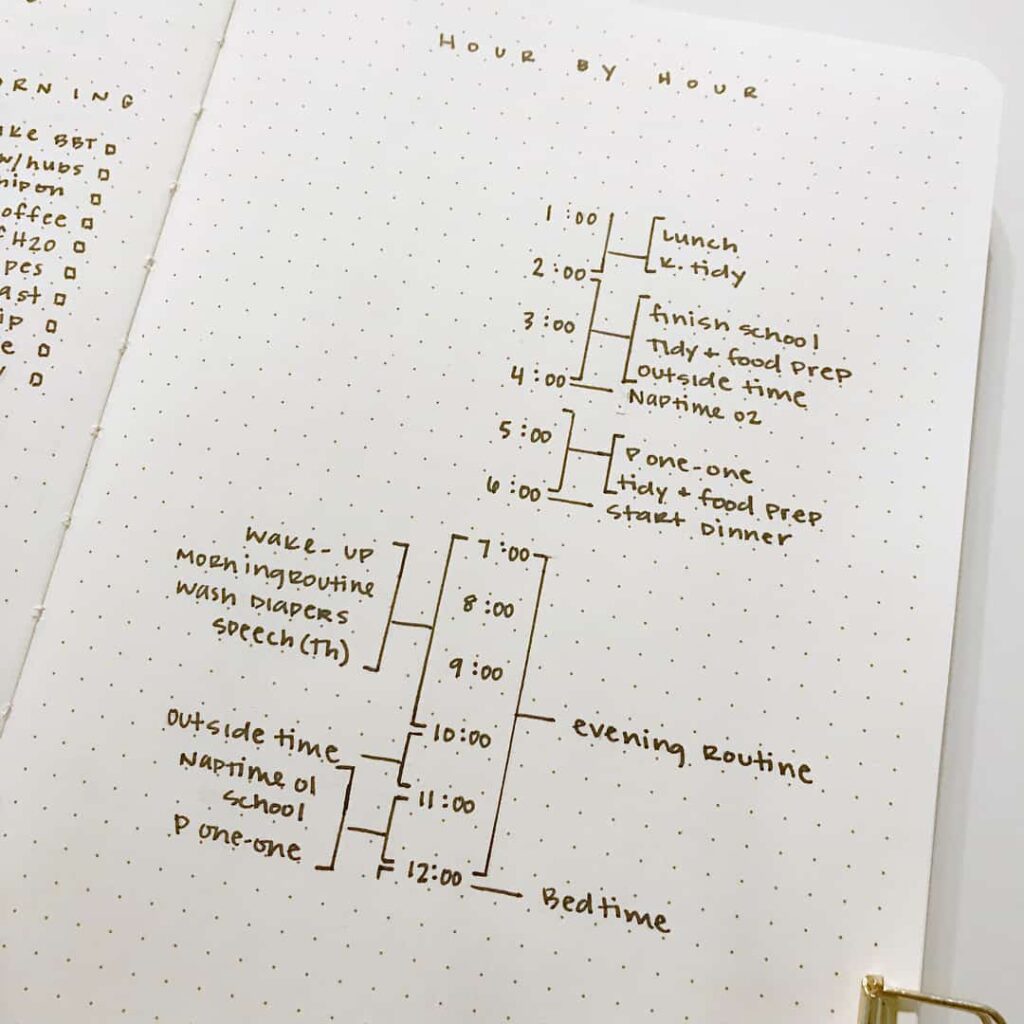 ORNING
BBT
w/hubs
H2O
HOUR BY HOUR
1:00
Lunch
K. tidy
2:00
3:00
finish school
Tidy + food prep
outside time
4:00
Naptime 02
5:00
P one-one
tidy + food prep
6:00
start Dinner
wake-up
Morning Routine
wash Diapers
speech (Th)
7:00
8:00
9:00
10:00
evening Routine
outside time
Naptime 01
school
P one-one
11:00
12:00
Bedtime